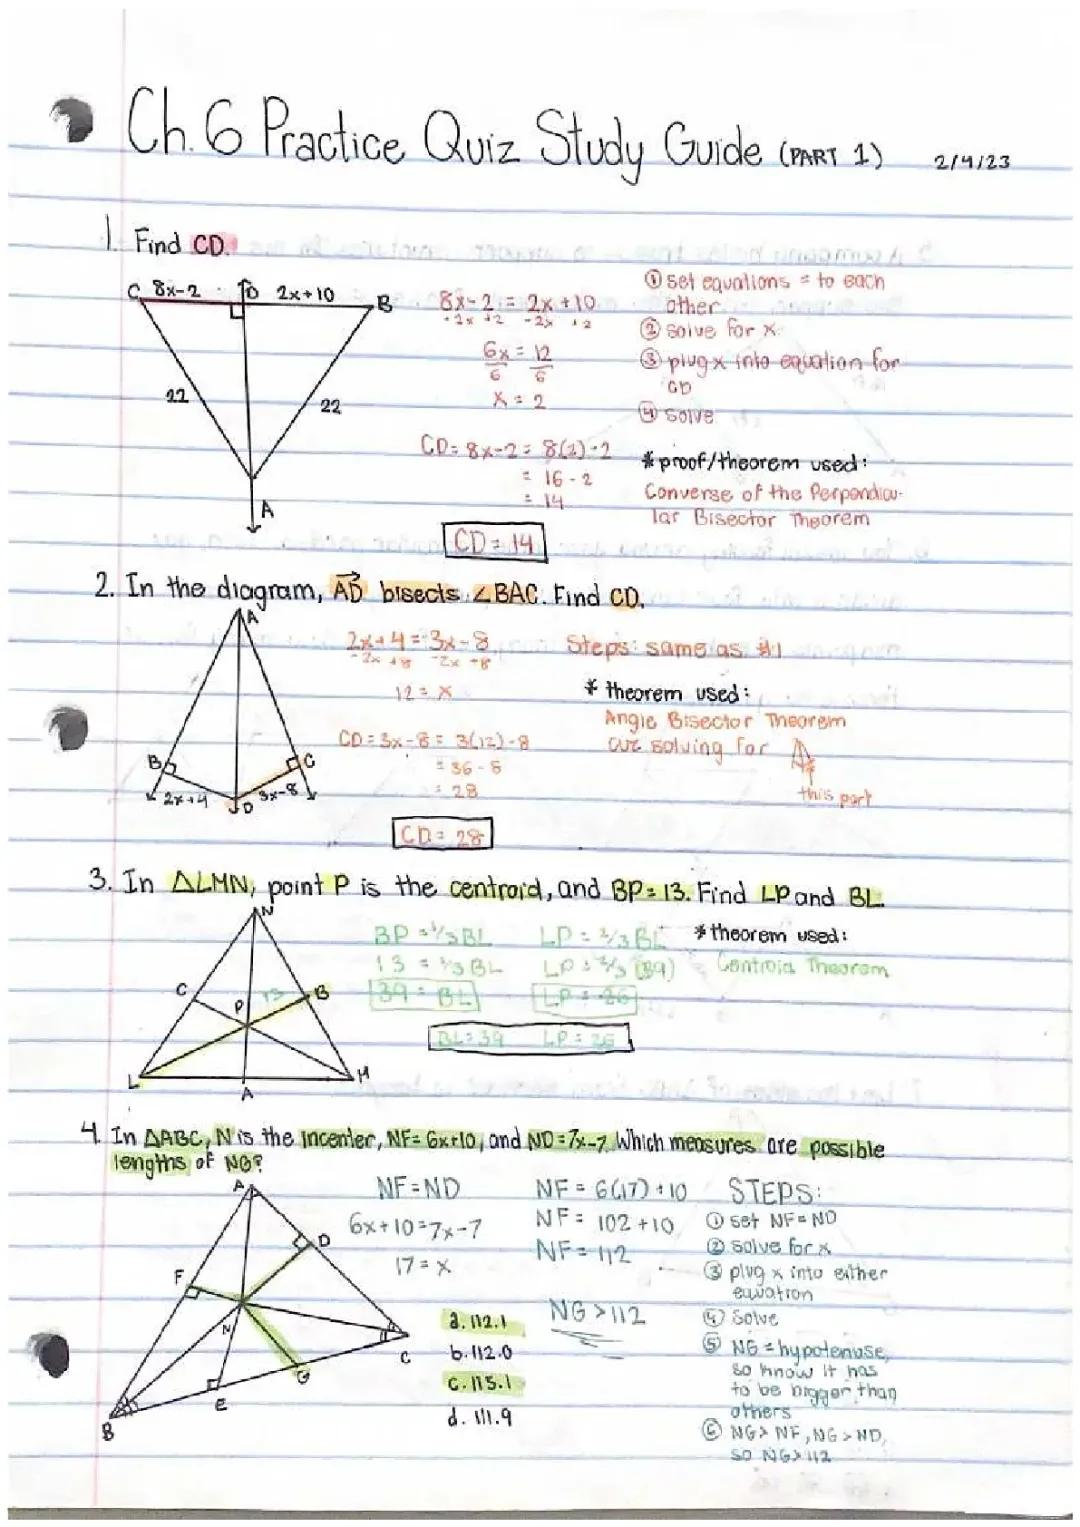 Ch. 6 Practice Quiz Study Guide (PART 1) 2/4/23
1. Find CD.
C 8x-2 D 2x+10 B
22 22
A
8x-2 = 2x+10
6x = 12
6 6
x = 2
CD = 8x-2 = 8(2)-2
= 16 - 2
= 14
CD = 14
① set equations = to each
other
② solve for x.
③ plug x into equation for
CD
④ solve
* proof/theorem used:
Converse of the Perpendicu-
lar Bisector Theorem
2. In the diagram, AD bisects ∠BAC. Find CD.
A
B C
2x+4 D 3x-8
2x+4 = 3x-8
-2x +8 -2x +8
12 = x
CD = 3x-8 = 3(12)-8
= 36-8
= 28
CD = 28
Steps: same as #1
* theorem used:
Angle Bisector Theorem
cuz solving for
this part
3. In △LMN, point P is the centroid, and BP = 13. Find LP and BL.
N
C P 13 B
L A M
BP = 1/3 BL
13 = 1/3 BL
39 = BL
LP = 2/3 BL
LP = 2/3 (39)
LP = 26
BL = 39 LP = 26
* theorem used:
Centroid Theorem
4. In △ABC, N is the incenter, NF = 6x+10, and ND = 7x-7. Which measures are possible
lengths of NG?
A
D
F
N
C
G
E
B
NF = ND
6x+10 = 7x-7
17 = x
NF = 6(17)+10
NF = 102+10
NF = 112
NG > 112
a. 112.1
b. 112.0
c. 115.1
d. 111.9
STEPS:
① set NF = ND
② solve for x
③ plug x into either
equation
④ Solve
⑤ NG = hypotenuse,
so know it has
to be bigger than
others
⑥ NG > NF, NG > ND,
so NG > 112